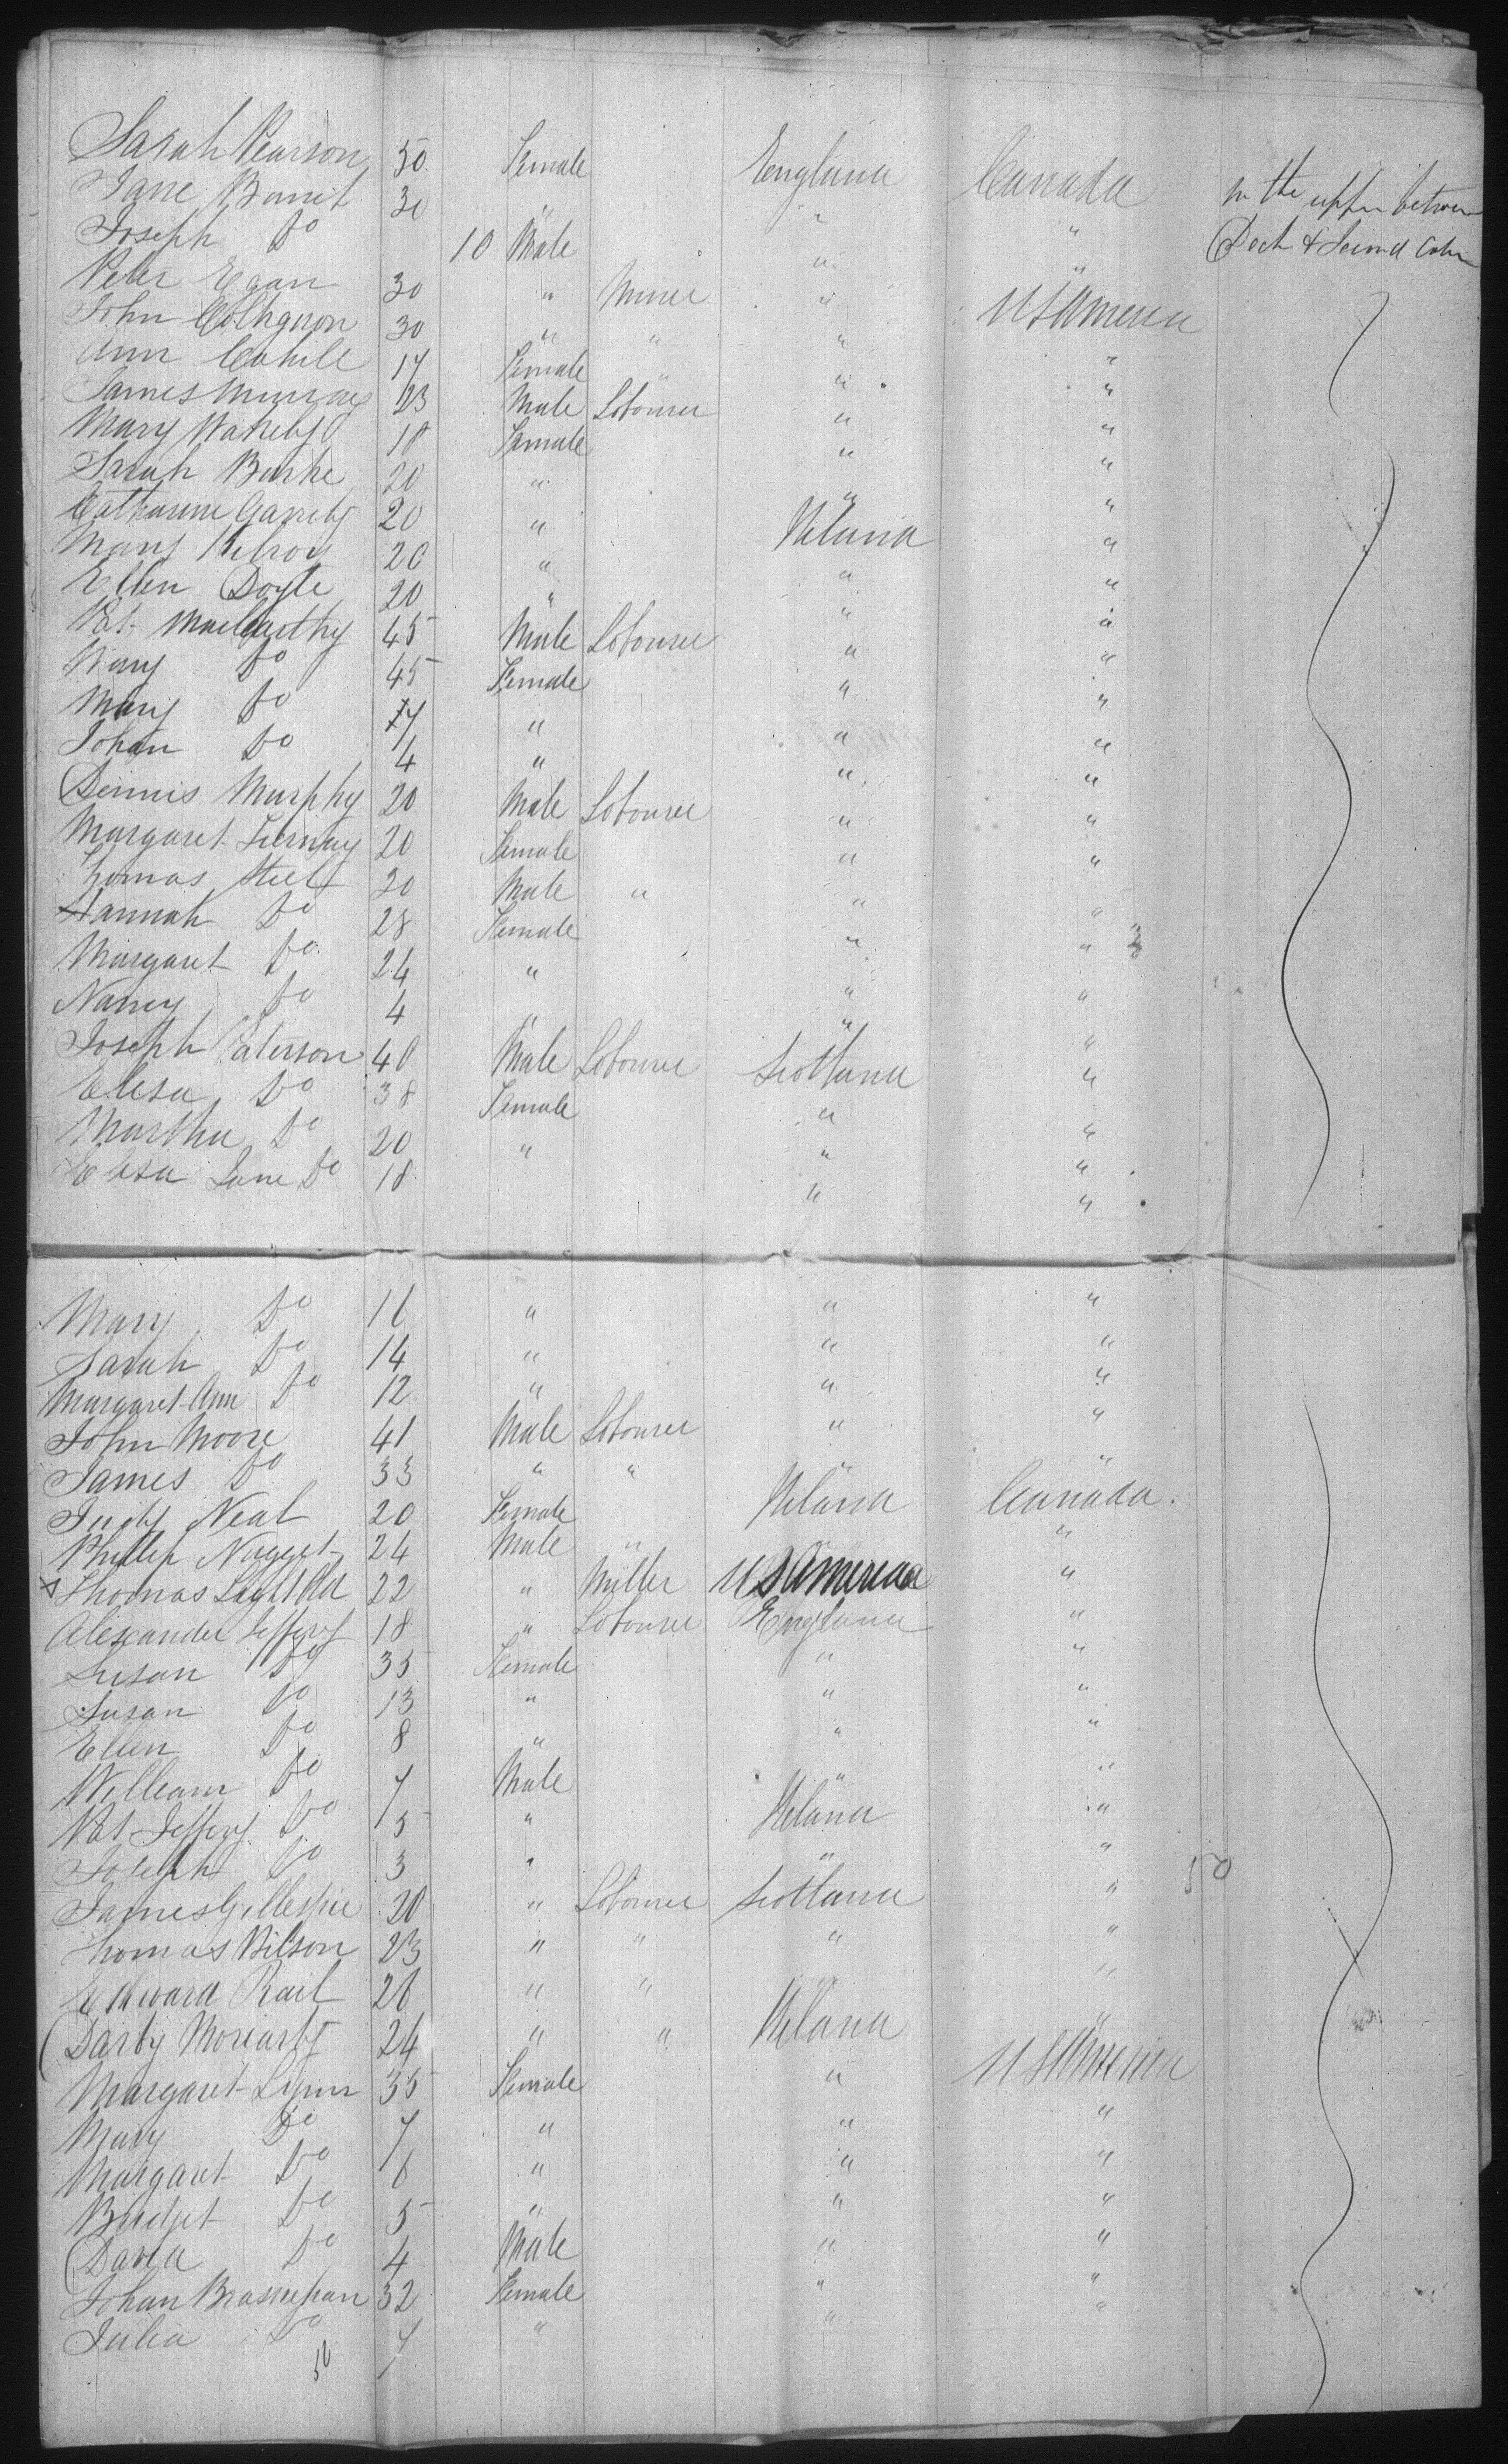 Sarah Pearson 50 Female England Canada In the upper between
Jane Burnit 30 " " " Deck & Second Cabin
Joseph Do 10 Male " "
Peter Egan 30 " Miner " U S America
John 30 " " " "
Ann Cahill 17 Female " " "
James Murray 23 Male Labourer " "
Mary 18 Female " "
Sarah Burke 20 " " "
Catharine Garrety 20 " Ireland "
Mary 20 " " "
Ellen Doyle 20 " " "
Pat MacCarthy 45 Male Labourer " "
Mary Do 45 Female " "
Mary Do 7 " " "
Johan Do 4 " " "
Dennis Murphy 20 Male Labourer " "
Margaret Tiernay 20 Female " "
Thomas Steel 30 Male " " "
Hannah Do 28 Female " "
Margaret Do 24 " " "
Nancy Do 4 " " "
Joseph Paterson 40 Male Labourer Scotland "
Elisa Do 38 Female " "
Martha Do 20 " " "
Elisa Jane Do 18 " "
Mary Do 16 " " "
Sarah Do 14 " " "
Margaret Ann Do 12 " " "
John Moore 41 Male Labourer " "
James Do 33 " " " "
Judy Neal 20 Female Ireland Canada
Phillip Nugget 24 Male " "
x Thomas 22 " Miller U S America "
Alexander Jeffery 18 " Labourer England "
Susan Do 35 Female " "
Susan Do 13 " " "
Ellen Do 8 " " "
William Do 7 Male " "
Pat Jeffery Do 5 " Ireland "
Joseph Do 3 " " " 50
James Gillespie 20 " Labourer Scotland "
Thomas Bilson 23 " " " "
Edward Rail 26 " " " "
Darby Moriarty 24 " " Ireland "
Margaret Lynn 35 Female " U S America
Mary Do 7 " " "
Margaret Do 6 " " "
Bridget Do 5 " " "
David Do 4 Male " "
Johan 32 Female " "
Julia Do 7 " " "
50